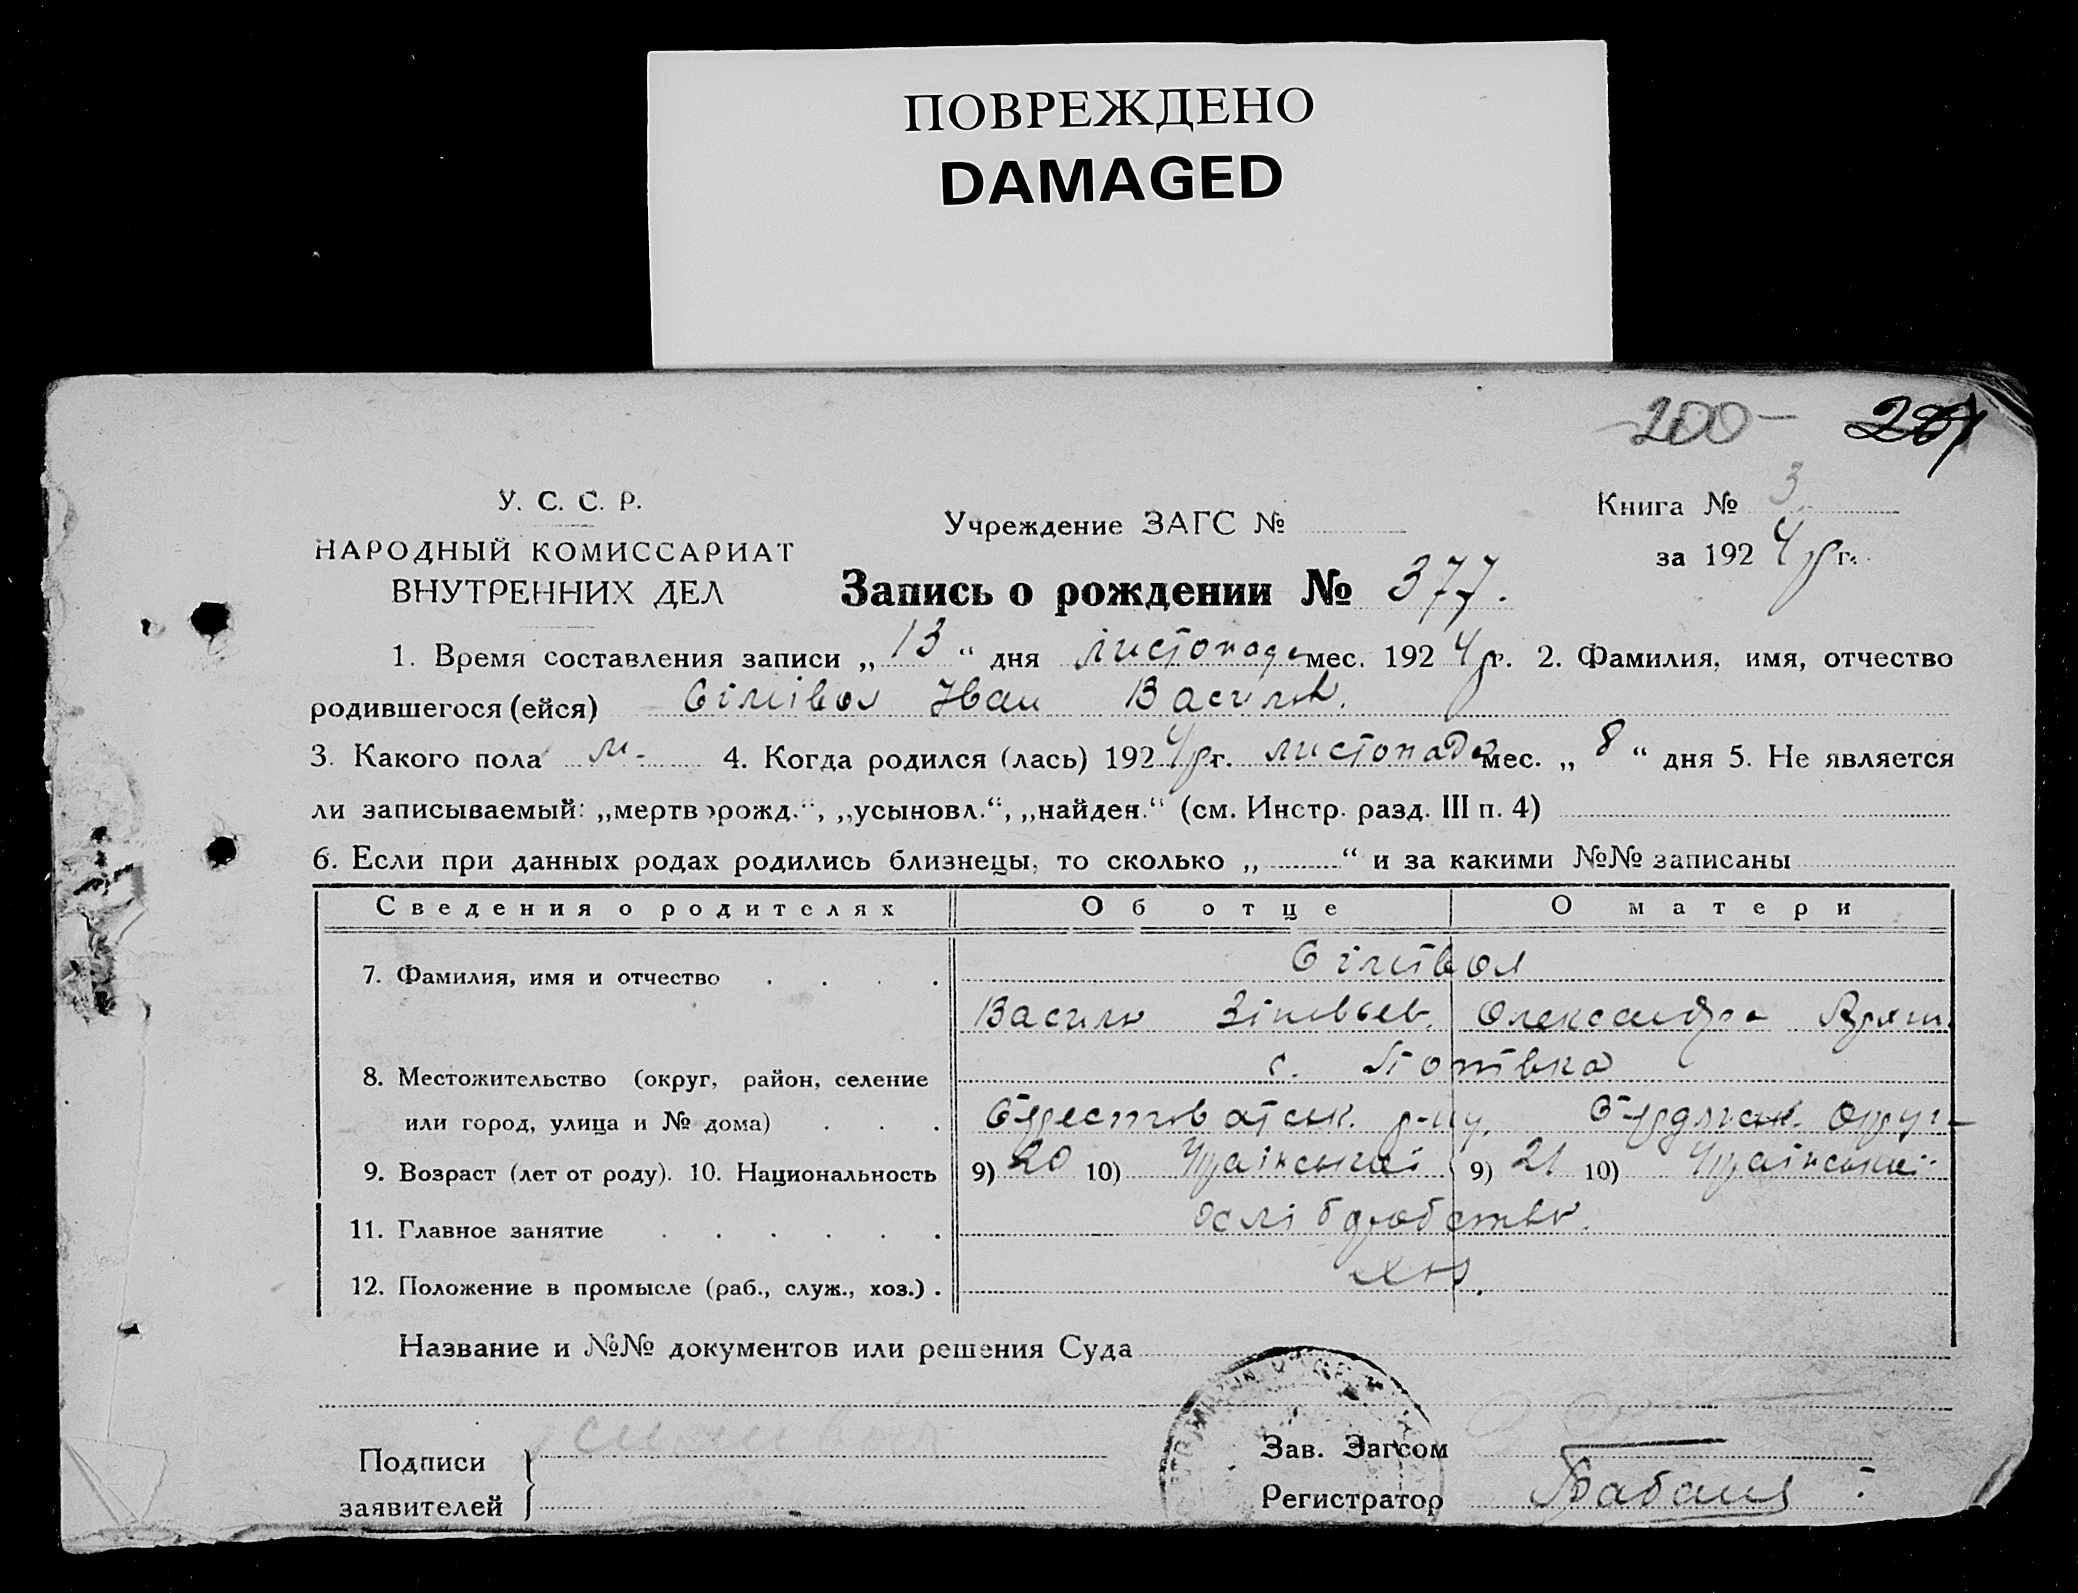 ПОВРЕЖДЕНО
DAMAGED
200
У. С. С. Р.
НАРОДНЫЙ КОМИССАРИАТ
ВНУТРЕННИХ ДЕЛ
Учреждение ЗАГС №
Книга № 3
за 1924 р г.
Запись о рождении № 377.
1. Время составления записи „13“ дня листопада мес. 1924 р г. 2. Фамилия, имя, отчество
родившегося (ейся) Іван Васильв.
3. Какого пола м. 4. Когда родился (лась) 1924 р г. листопада мес. „8“ дня 5. Не является
ли записываемый: „мертворожд.“, „усыновл.“, „найден.“ (см. Инстр. разд. III п. 4)
6. Если при данных родах родились близнецы, то сколько „ “ и за какими №№ записаны
Сведения о родителях Об отце О матери
7. Фамилия, имя и отчество
Василь Зіновьев. Олександра
8. Местожительство (округ, район, селение с. Попівка
или город, улица и № дома) р-ну,
9. Возраст (лет от роду). 10. Национальность 9) 20 10) Українській 9) 21 10) Українській
11. Главное занятие
12. Положение в промысле (раб., служ., хоз.)
Название и №№ документов или решения Суда
Подписи
заявителей
Зав. Загсом
Регистратор